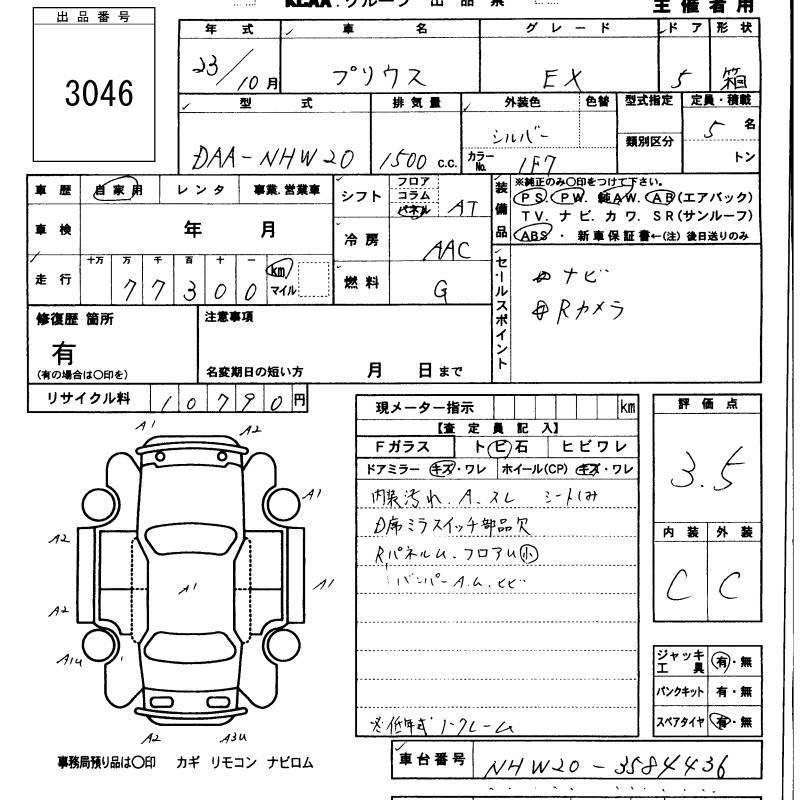 KCAA.グループ 出品票
主催者用
出品番号
3046
年式 車名 グレード ドア 形状
23/10月 プリウス EX 5 箱
型式 排気量 外装色 色替 型式指定 定員・積載
DAA-NHW20 1500 c.c. シルバー 類別区分 5名
カラーNo. 1F7 トン
車歴 自家用 レンタ 事業.営業車
車検 年 月
走行 十万 万 千 百 十 一
77300 km マイル
シフト フロア コラム パネル AT
冷房 AAC
燃料 G
装備品 ※純正のみ〇印をつけて下さい。
PS. PW. 純AW. AB(エアバック)
TV. ナビ. カワ. SR(サンルーフ)
ABS・新車保証書←(注)後日送りのみ
セールスポイント
ナビ
Rカメラ
修復歴 箇所
有
(有の場合は〇印を)
注意事項
名変期日の短い方 月 日まで
リサイクル料 10790円
現メーター指示 km
【査定員記入】
Fガラス トビ石 ヒビワレ
ドアミラー キズ・ワレ ホイール(CP) キズ・ワレ
内装汚れ.A.スレ シートしみ
D席ミラスイッチ部品欠
RパネルU.フロアU小
バンパーA.U.ヒビ
※低年式 ノークレーム
評価点
3.5
内装 外装
C C
ジャッキ工具 有・無
パンクキット 有・無
スペアタイヤ 有・無
A1 A2
A1
A2
A1 A1
A2
A1U
A2 A3U
事務局預り品は〇印 カギ リモコン ナビロム
車台番号 NHW20-3584436